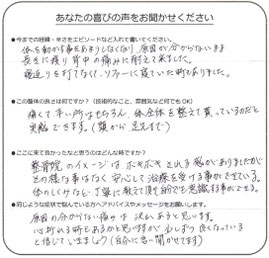 あなたの喜びの声をお聞かせください
●今までの経緯・辛さをエピソードなど入れて書いてください。
体を動かす事をあまりしなくなり、原因が分からないまま
長きに渡り背中の痛みに耐えて来ました。
寝返りを打てなくて、ソファーに寝ていた時もありました。
●この整体の良さは何ですか？(技術的なこと、雰囲気など何でもOK)
痛くて辛い所はもちろん、体全体を整えて貰っているのだと
実感できます。(頭から足先まで)
●ここに来て良かったなと思うのはどんな時ですか？
整骨院のイメージは ボキボキ される感がありましたが
その様な事はなく、安心して治療を受ける事ができている。
体のしくみなど、丁寧に教えて頂き
●同じような症状で悩んでいる方へアドバイスやメッセージをお願いします。
原因の分からない痛みは 沢山あると思います。
心折れる時もあるかと思いますが、少しずつ良くなっている
と信じていきましょう(自分に言い聞かせてます)